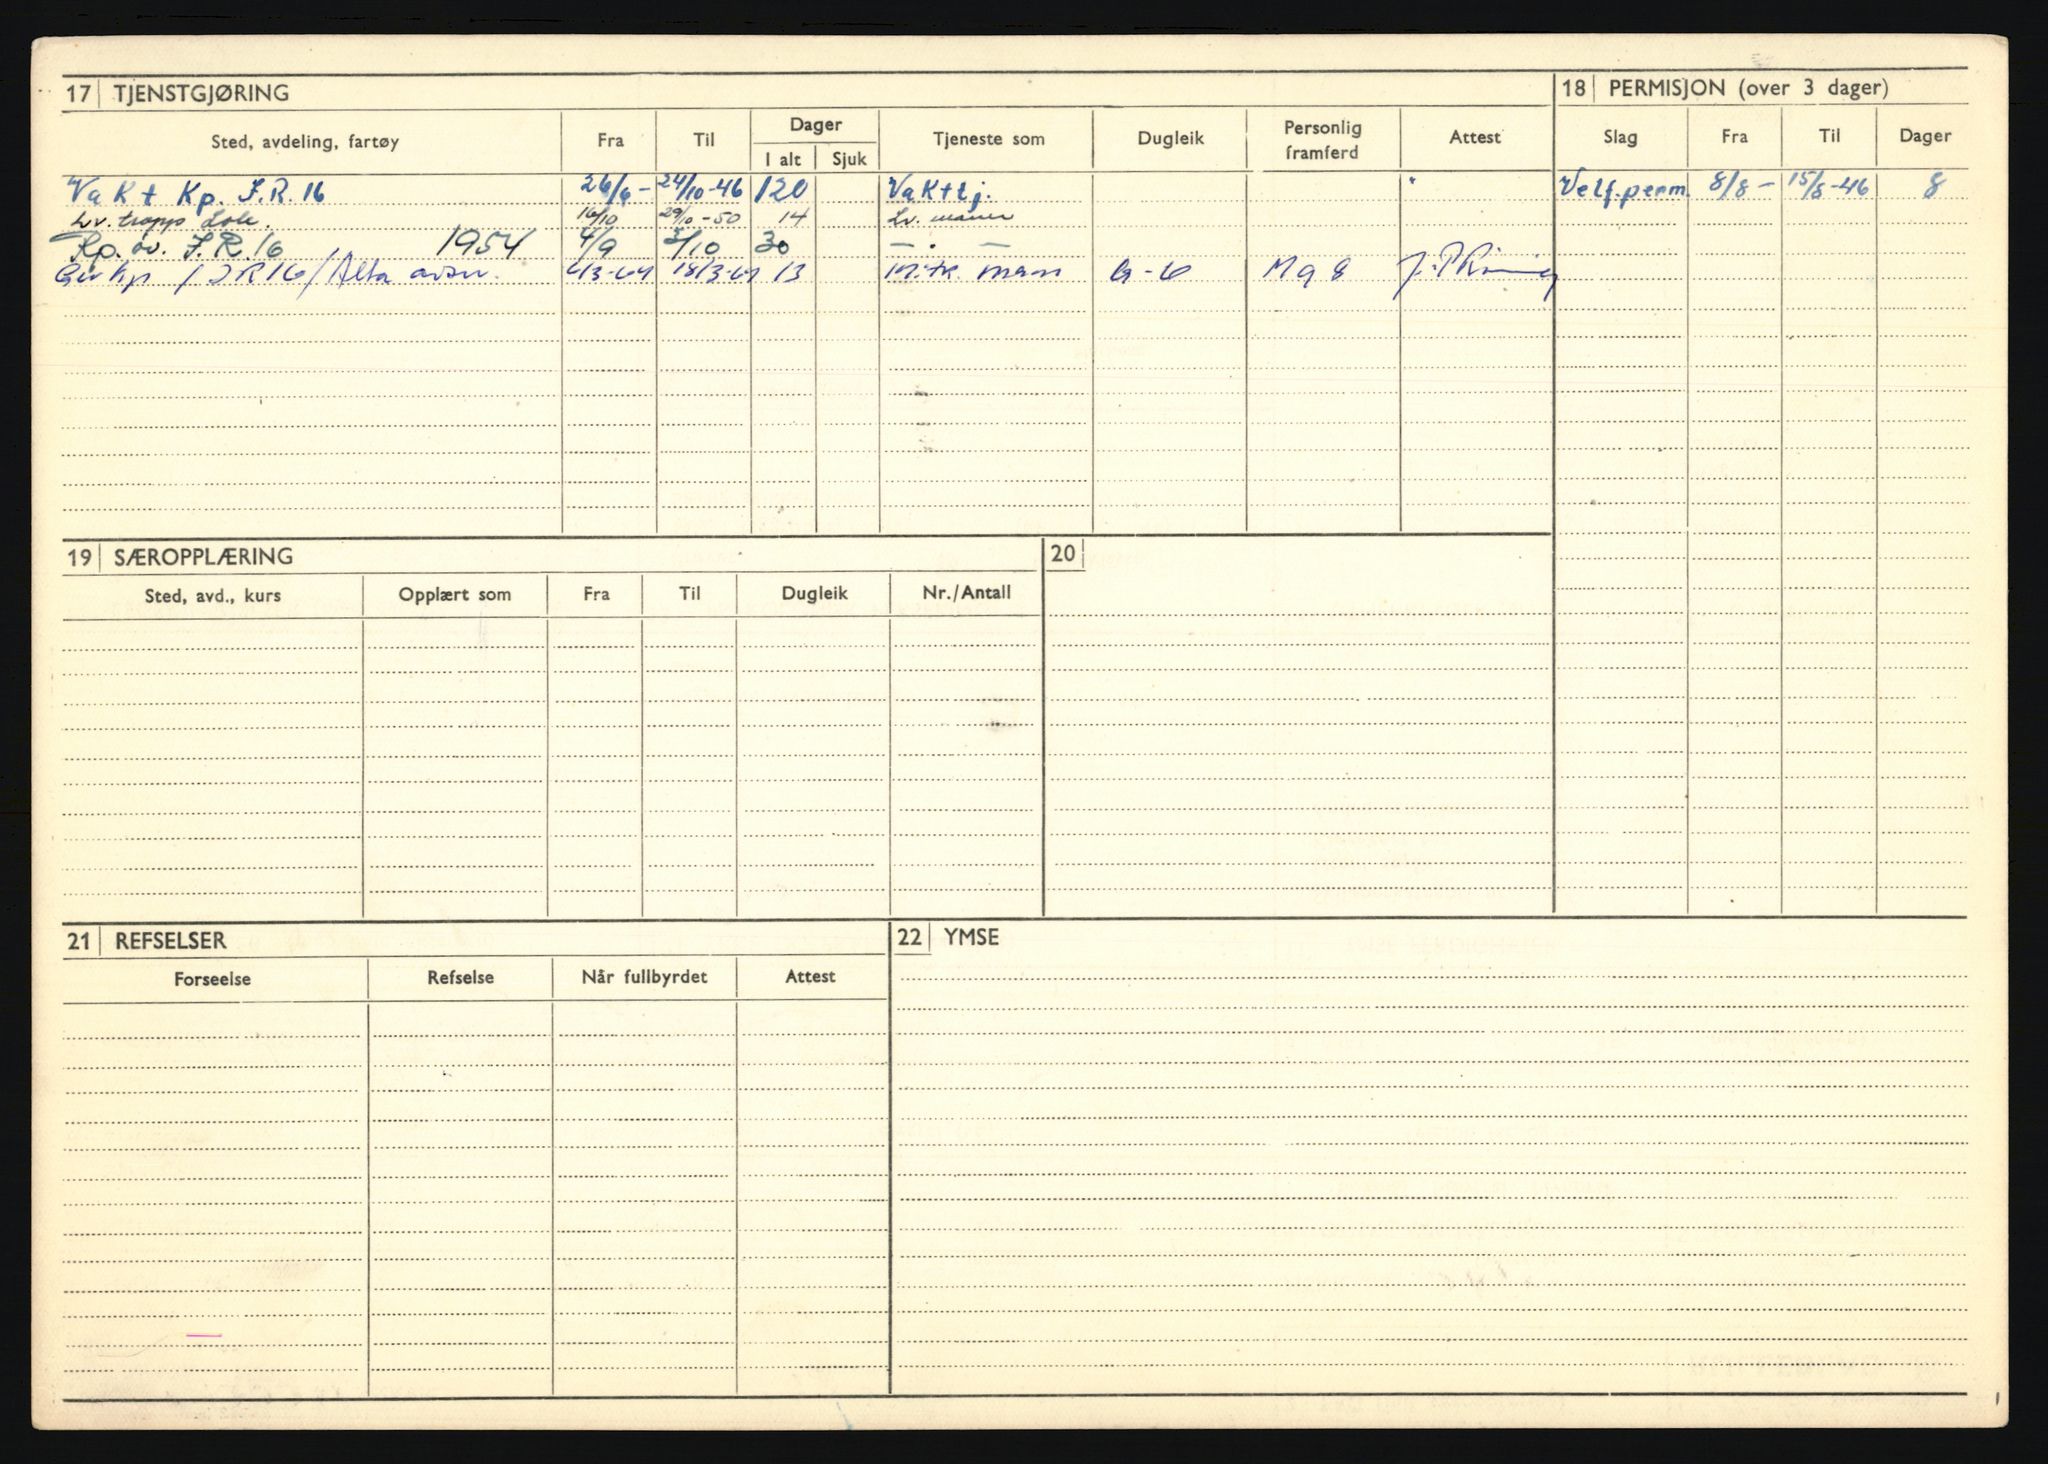 17 TJENSTGJØRING
18 PERMISJON (over 3 dager)
Sted, avdeling, fartøy Fra Til Dager I alt Sjuk Tjeneste som Dugleik Personlig framferd Attest
Slag Fra Til Dager
Vakt Kp. I.R. 16 26/6- 24/10-46 120 Vakttj. Velf.perm. 8/8- 15/8-46 8
Lv. tropp 16/10 29/10-50 14 Lv. mann
Rp. øv. I.R. 16 1954 4/9 3/10 30 — . —
/ IR 16 / Alta avsn. 4/3-64 18/3-64 13 mitr. mann G-6 M g 8
19 SÆROPPLÆRING
20
Sted, avd., kurs Opplært som Fra Til Dugleik Nr./Antall
21 REFSELSER
22 YMSE
Forseelse Refselse Når fullbyrdet Attest